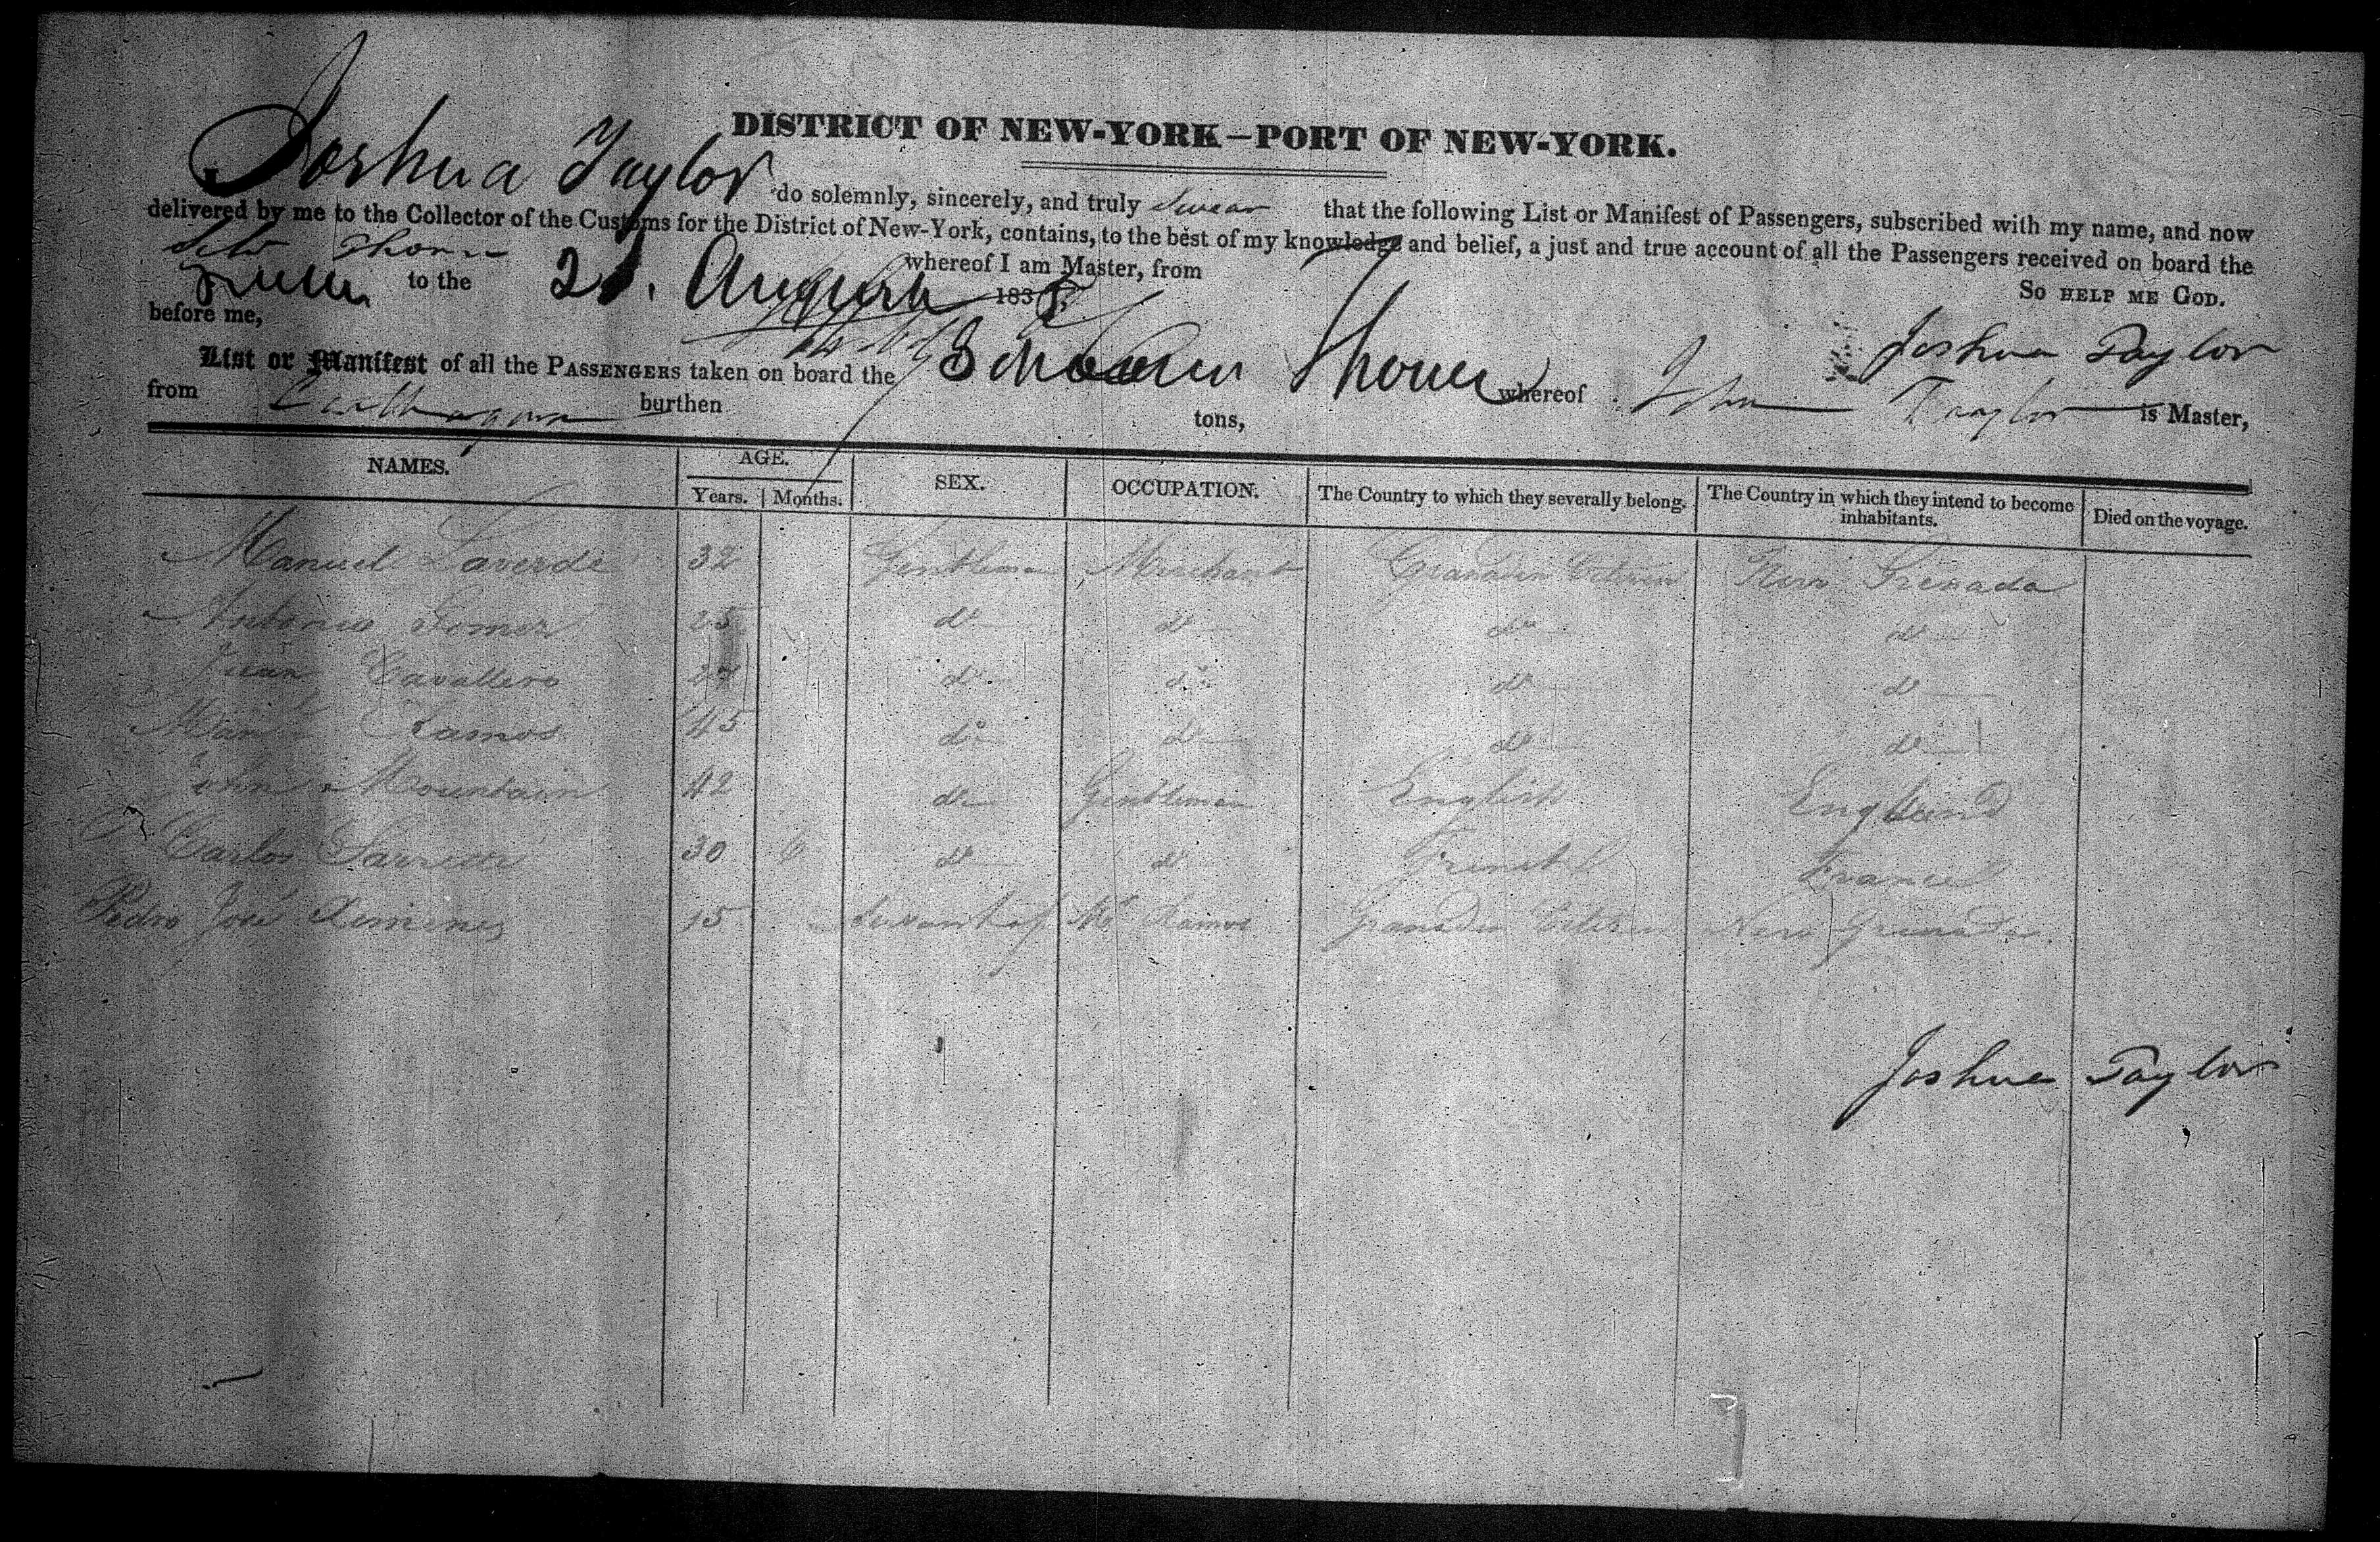 DISTRICT OF NEW-YORK—PORT OF NEW-YORK.
Joshua Taylor do solemnly, sincerely, and truly swear that the following List or Manifest of Passengers, subscribed with my name, and now
delivered by me to the Collector of the Customs for the District of New-York, contains, to the best of my knowledge and belief, a just and true account of all the Passengers received on board the
whereof I am Master, from
to the August 183
So HELP ME GOD.
before me,
Joshua Taylor
List or Manifest of all the PASSENGERS taken on board the whereof John Taylor is Master,
from burthen tons,
NAMES. AGE. SEX. OCCUPATION. The Country to which they severally belong. The Country in which they intend to become inhabitants. Died on the voyage.
Years. Months.
Manuel Laverde 32 Gentleman Merchant Granadien Citizen New Grenada
Antonio Gomez 25 do do do do
Juan Cavallero 27 do do do do
Manl Ramos 45 do do do do
John Mountain 42 do Gentleman English England
Carlos 30 6 do do French France
Pedro José Ximenes 15 Servant of Mr Ramos Citizen New Grenada
Joshua Taylor